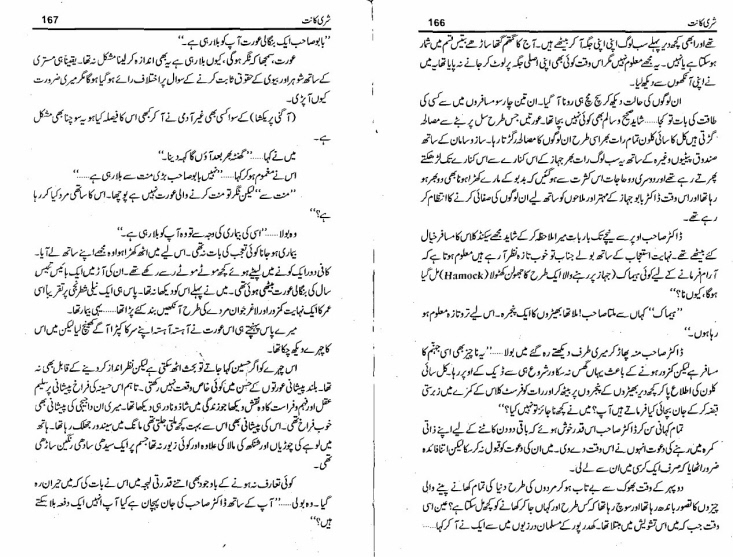 شری کانت
166
تھے اور ابھی کچھ دیر پہلے سب لوگ اپنی اپنی جگہ آ کر بیٹھے ہیں۔ آج کا سمندر گھٹتا ساڑھے بتیس قسم میں شمار
ہو سکتا ہے یا نہیں۔ مجھے معلوم نہیں مگر اس وقت کوئی بھی اپنی اصلی جگہ پر لوٹ کر جانے نہ پایا تھا یہ میں
نے اپنی آنکھوں سے دیکھ لیا۔
ان لوگوں کی حالت دیکھ کر سچ مچ ہی رونا آ گیا۔ ان تین چار سو مسافروں میں سے کسی کی
طاقت کی بات تو کجا...... شاید صحیح و سالم بھی کوئی نہیں بچا تھا۔ عورتیں جس طرح سل پر بٹے سے مصالحہ
رگڑتی ہیں کل کا سائی کلون تمام رات بھر اسی طرح ان لوگوں کا مصالحہ رگڑتا رہا۔ ساز و سامان کے ساتھ
صندوق پیٹیوں وغیرہ کے ساتھ یہ سب لوگ رات بھر جہاز کے اس کنارے سے اس کنارے تک لڑھکتے
پھرتے رہے تھے اور دوسری دو حاجات اس کثرت سے ہو گئیں کہ بدبو کے مارے کھڑا ہونا بھی دوبھر ہو
رہا تھا اور اس وقت ڈاکٹر بابو جہاز کے مہتر اور ملاحوں کو ساتھ لیے ان لوگوں کی صفائی کرنے کا انتظام کر
رہے تھے۔
ڈاکٹر صاحب اوپر سے نیچے تک بار بات میرا ملاحظہ کر کے شاید مجھے سیکنڈ کلاس کا مسافر خیال
کئے بیٹھے تھے۔ نہایت استعجاب کے ساتھ بولے جناب تو خوب تازہ نظر آ رہے ہیں معلوم ہوتا ہے کہ
آرام فرمانے کے لیے کوئی ہیماک (جہاز پر رہنے والا ایک طرح کا جھولن کھٹولا (Hamock) مل گیا
ہوگا، کیوں نا؟"
"ہیماک" کہاں سے ملتا صاحب! ملا تھا بھیڑوں کا ایک پنجرہ۔ اس لیے تر و تازہ معلوم ہو
رہا ہوں۔
ڈاکٹر صاحب منہ پھاڑ کر میری طرف دیکھتے رہ گئے میں بولا...... "یہ ناچیز بھی اسی جہنم کا
مسافر ہے لیکن کمزور ہونے کے باعث یہاں گھس نہ سکا اور شروع ہی سے ڈیک کے اوپر رہا۔ کل سائی
کلون کی اطلاع پا کر کچھ دیر بھیڑوں کے پنجروں پر بیٹھ کر اور رات کو فرسٹ کلاس کے کمرے میں زبردستی
قبضہ کر کے جان بچائی کیا فرماتے ہیں آپ؟ میں نے کچھ ناجائز تو نہیں کیا؟"
تمام کہانی سن کر ڈاکٹر صاحب اس قدر خوش ہوئے کہ باقی دو دن کاٹنے کے لیے اپنے ذاتی
کمرہ میں رہنے کی دعوت انہوں نے اس وقت دے دی۔ میں ان کی دعوت کو قبول نہ کر سکا لیکن اتنا فائدہ
ضرور اٹھایا کہ صرف ایک کرسی میں ان سے لے لی۔
دوپہر کے وقت بھوک سے بے تاب ہو کر مردوں کی طرح دنیا کی تمام کھانے پینے والی
چیزوں کا تصور باندھ رہا تھا اور سوچ رہا تھا کہ کس طرح اور کہاں جا کر کھانے کو کچھ مل سکتا ہے؟ عین اسی
وقت جب کہ میں اس تشویش میں مبتلا تھا۔ کھدر پور کے مسلمان درزیوں میں سے ایک نے آ کر کہا......
شری کانت
167
"بابو صاحب ایک بنگالی عورت آپ کو بلا رہی ہے۔"
عورت، سمجھا کہ ٹگر ہوگی، کیوں بلا رہی ہے یہ بھی اندازہ کر لینا مشکل نہ تھا۔ یقیناً ہی مستری
کے ساتھ شوہر اور بیوی کے حقوق ثابت کرنے کے سوال پر اختلاف رائے ہو گیا ہوگا مگر میری ضرورت
کیوں آ پڑی۔
(آگنی پریکشا) کے سوا کسی بھی غیر آدمی نے آ کر کبھی اس کا فیصلہ کیا ہو یہ سوچنا بھی مشکل
ہے۔
میں نے کہا...... "گھنٹہ بھر بعد آؤں گا کہہ دینا۔"
اس نے مغموم ہو کر کہا...... "نہیں بابو صاحب بڑی منت سے بلا رہی ہے......"
"منت سے" لیکن ٹگر تو منت کرنے والی عورت نہیں ہے پوچھا۔ اس کا ساتھی مرد کیا کر رہا
ہے؟"
وہ بولا...... "اسی کی بیماری کی وجہ سے تو وہ آپ کو بلا رہی ہے۔"
بیماری ہو جانا کوئی تعجب کی بات نہ تھی۔ اس لیے میں اٹھ کھڑا ہوا وہ مجھے اپنے ساتھ لے آیا۔
کافی دور ایک کونے میں لپیٹے ہوئے کچھ موٹے موٹے رسے رکھے تھے۔ ان کی آڑ میں ایک بائیس تئیس
سال کی بنگالی عورت بیٹھی ہوئی تھی۔ میں نے پہلے اس کو دیکھا نہ تھا۔ پاس ہی ایک نیلی شطرنجی پر تقریباً اسی
عمر کا ایک نہایت کمزور اور لاغر جوان مردے کی طرح آنکھیں بند کئے پڑا تھا...... یہی بیمار تھا۔
میرے پاس پہنچتے ہی اس عورت نے آہستہ آہستہ اپنے سر کا کپڑا آگے کھینچ لیا لیکن میں اس
کا چہرہ دیکھ چکا تھا۔
اس چہرے کو اگر حسین کہا جائے تو بحث اٹھ سکتی ہے لیکن نظر انداز کر دینے کے قابل بھی نہ
تھا۔ بلند پیشانی عورتوں کے حسن میں کوئی خاص وقعت نہیں رکھتی۔ تاہم اس حسینہ کی فراخ پیشانی پر سلیم
عقل اور فہم و فراست کا وہ نقش دیکھا جو زندگی میں شاذ و نادر ہی دیکھا تھا۔ میری ان دیدی کی پیشانی بھی
خوب فراخ تھی۔ اس کی پیشانی بھی اس سے بہت کچھ ملتی جلتی تھی مانگ میں سیندور جھلک رہا تھا۔ ہاتھ
میں لوہے کی چوڑیاں اور شنکھ کی مالا کی علاوہ اور کوئی زیور نہ تھا جسم پر ایک سیدھی سادھی رنگین ساڑھی
تھی۔
کوئی تعارف نہ ہونے کے باوجود بھی اتنے قدرتی لہجہ میں اس نے بات کی کہ میں حیران رہ
گیا۔ وہ بولی...... "آپ کے ساتھ ڈاکٹر صاحب کی جان پہچان ہے کیا آپ انہیں ایک دفعہ بلا سکتے
ہیں؟"